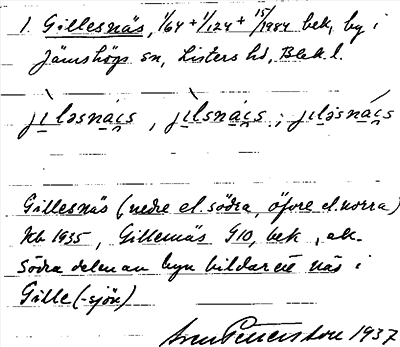 1. Gillesnäs, 1/64 + 1/124 + 15/1984 bek, by i
Jämshögs sn, Listers hd, Blek. l.
jɪləsnáɪs, jɪlsnáɪs; jɪləsnáɪs
Gillesnäs (nedre el. södra, öfre el. norra)
Kb 1935, Gillesnäs G10, bek, ek.
Södra delen av byn bildar ett näs i
Gille (-sjön)
Petersson 1937